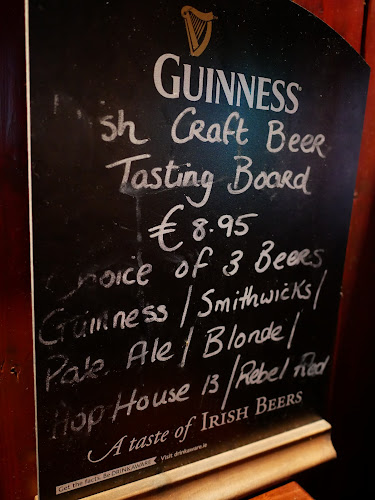 GUINNESS
Irish Craft Beer
Tasting Board
€8.95
Choice of 3 Beers
Guinness / Smithwicks /
Pale Ale / Blonde /
Hop House 13 / Rebel Red
A taste of IRISH BEERS
Get the facts. Be DRINKAWARE Visit drinkaware.ie